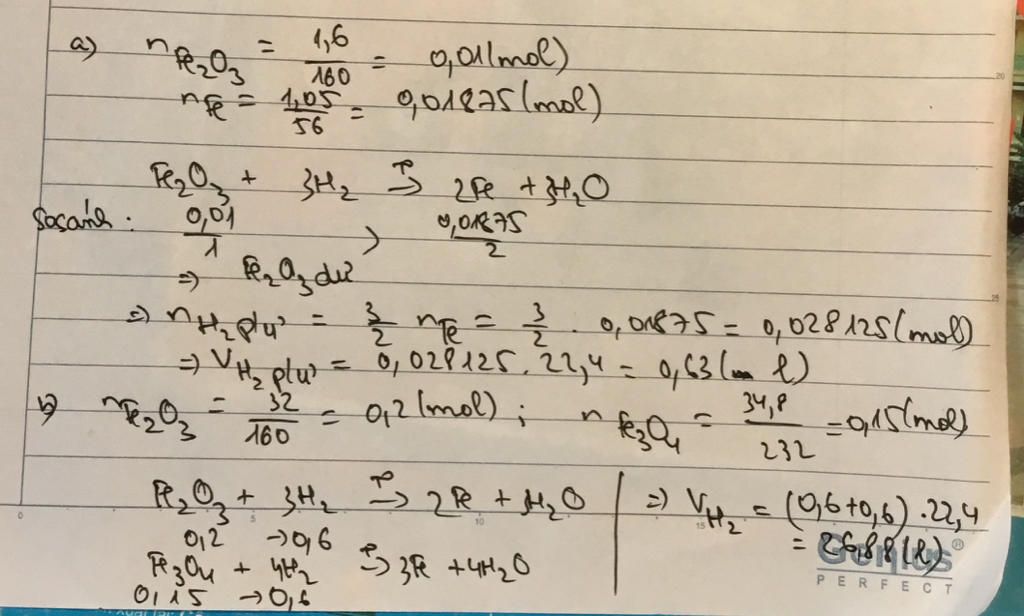 a) nFe₂O₃ = 1,6/160 = 0,01 (mol)
nFe = 1,05/56 = 0,01875 (mol)
Fe₂O₃ + 3H₂ →(t°) 2Fe + 3H₂O
So sánh: 0,01/1 > 0,01875/2
=> Fe₂O₃ dư
=> nH₂ pư = 3/2 nFe = 3/2 . 0,01875 = 0,028125 (mol)
=> VH₂ pư = 0,028125 . 22,4 = 0,63 (l)
b) nFe₂O₃ = 32/160 = 0,2 (mol) ; nFe₃O₄ = 34,8/232 = 0,15 (mol)
Fe₂O₃ + 3H₂ →(t°) 2Fe + 3H₂O
0,2 → 0,6
Fe₃O₄ + 4H₂ →(t°) 3Fe + 4H₂O
0,15 → 0,6
=> VH₂ = (0,6 + 0,6) . 22,4
= 26,88 (l)
Genius®
PERFECT
0 5 10 15
20
25